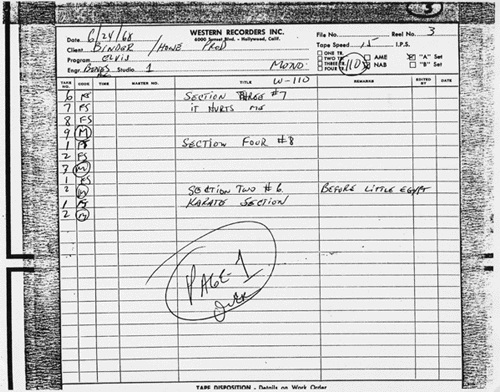 3
WESTERN RECORDERS INC.
6000 Sunset Blvd. - Hollywood, Calif.
Date 6/24/68
Client BINDER / HOWE PROD
Program ELVIS
Engr. Studio 1 MONO
File No. Reel No. 3
Tape Speed 15 I.P.S.
ONE TR. AME "A" Set
TWO TR. NAB "B" Set
THREE TR.
FOUR TR.
110
W-110
TAKE NO. CODE TIME MASTER NO. TITLE REMARKS EDITED BY DATE
6 FS SECTION #7
7 FS IT HURTS ME
8 FS
9 M
1 FS SECTION FOUR #8
2 FS
3 M
1 FS
2 M SECTION TWO #6 BEFORE LITTLE EGYPT
1 FS KARATE SECTION
2 M
PAGE-1
TAPE DISPOSITION - Details on Work Order